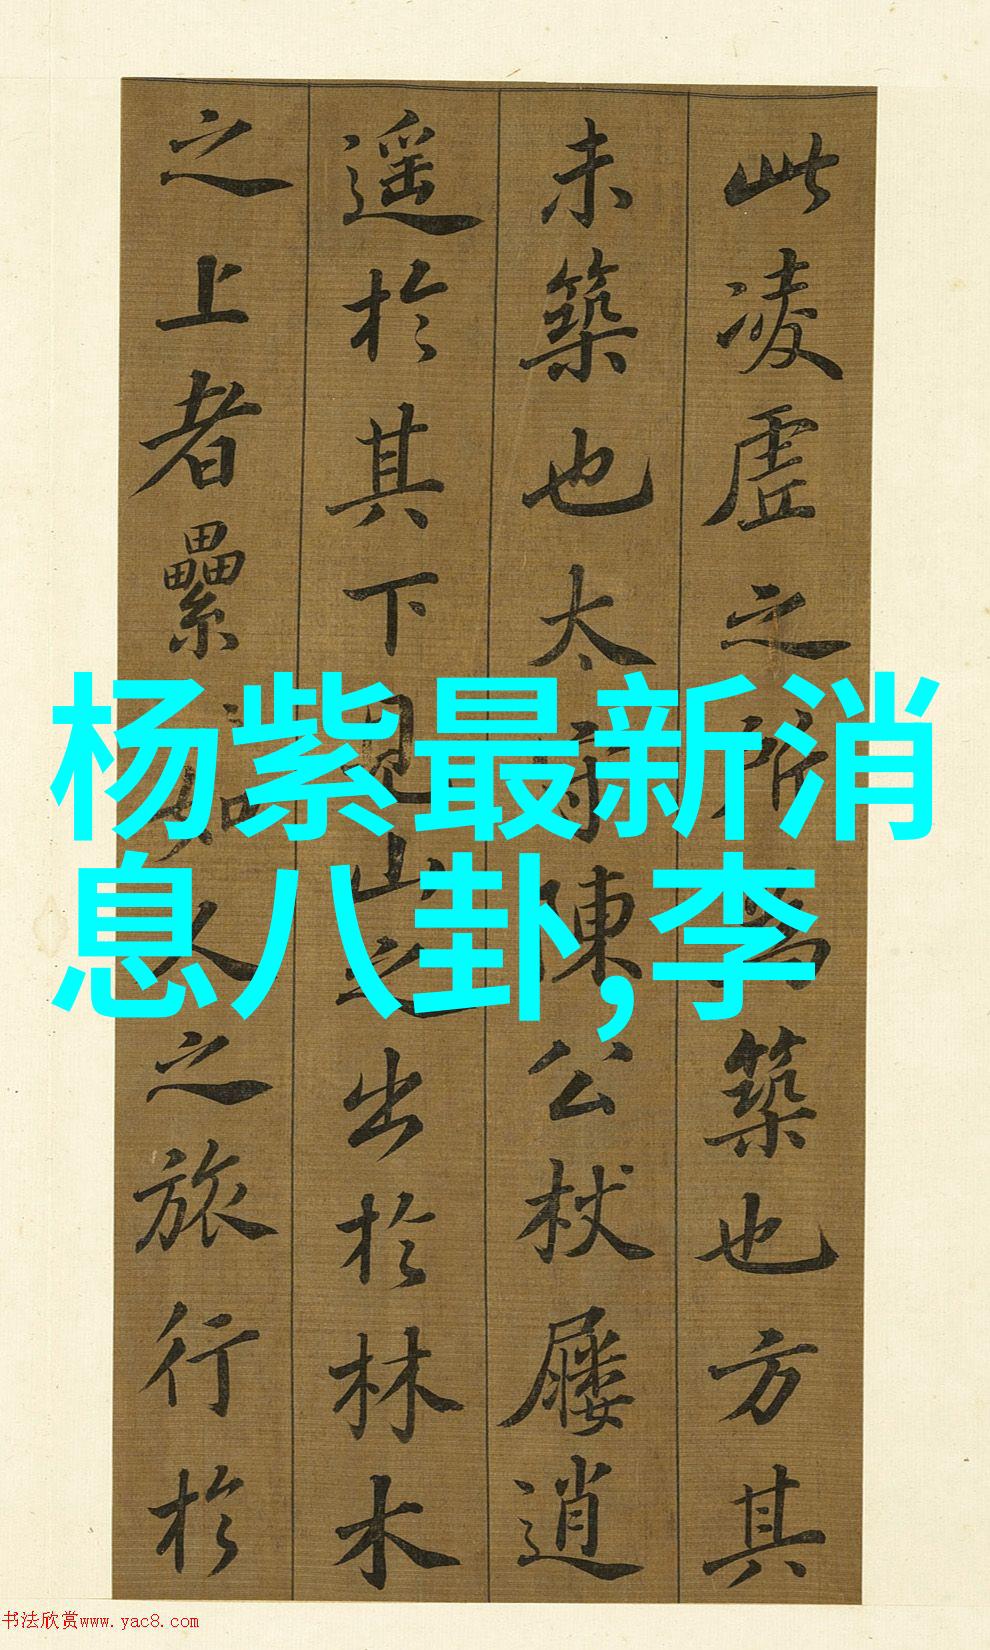 此凌虗之所為築也方其
未築也太守陳公杖屨逍
遥於其下見山之出於林木
之上者纍如人之旅行於
杨紫最新消
息八卦,李
书法欣赏www.yac8.com